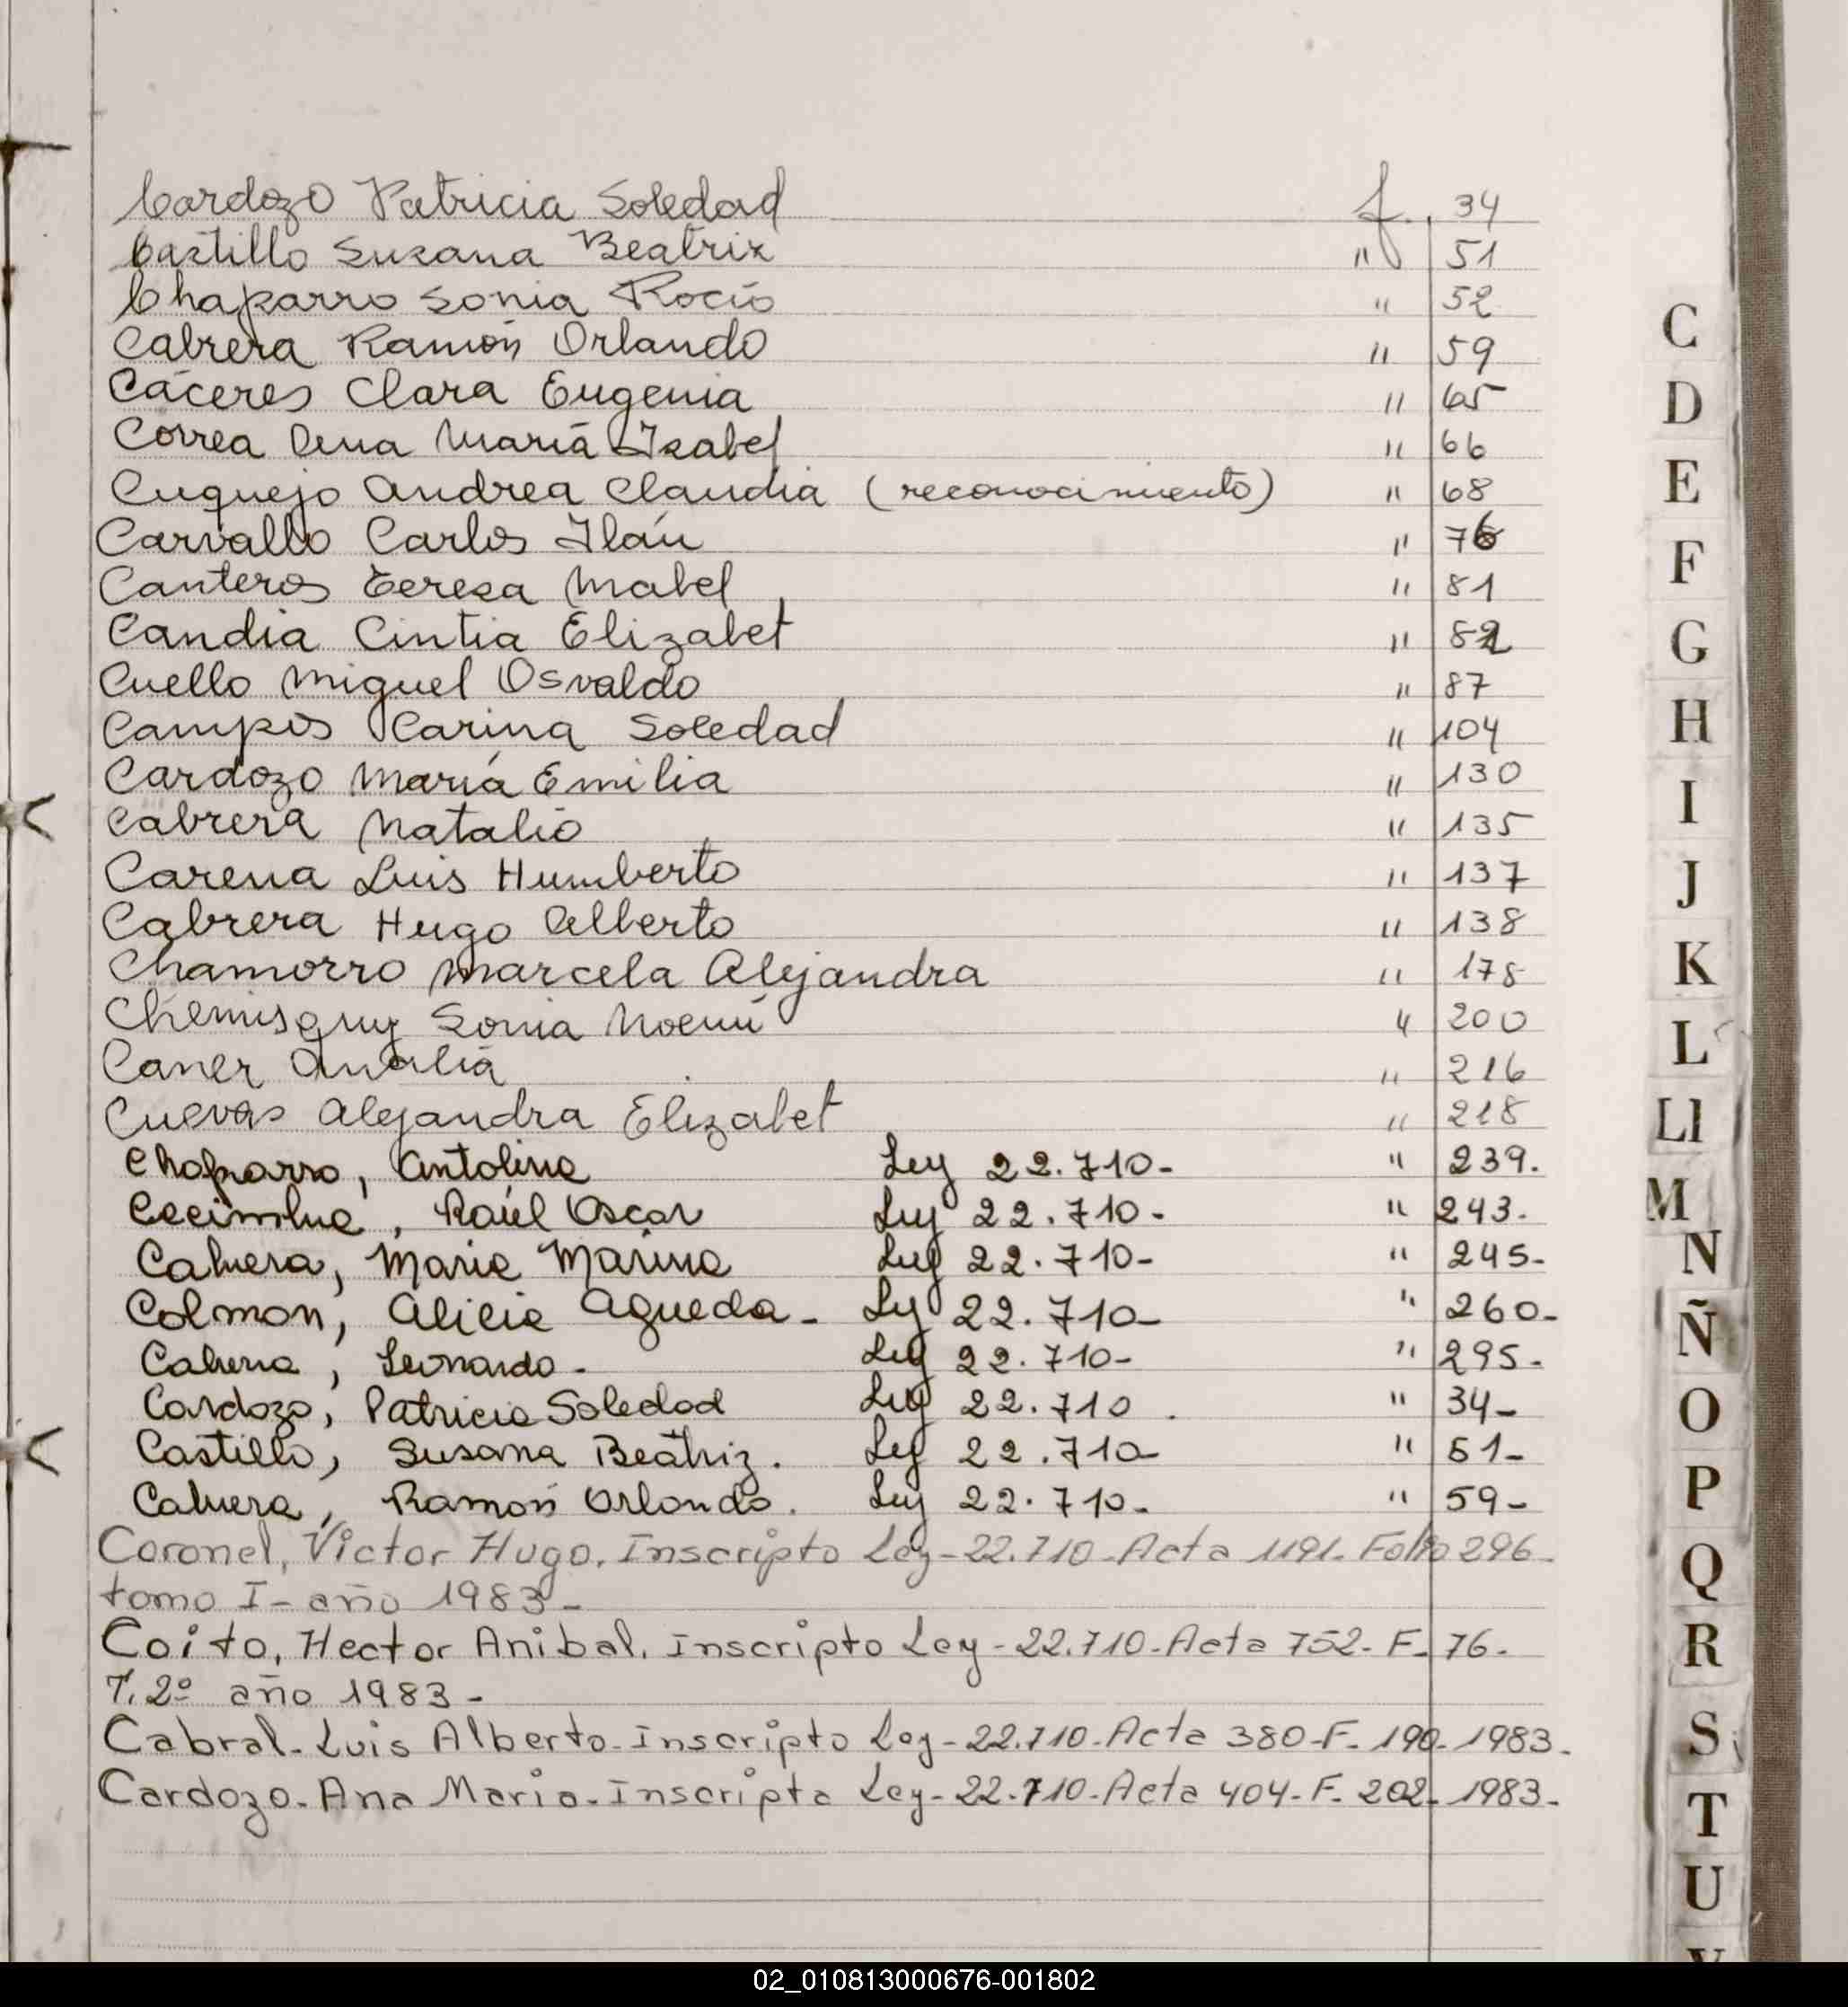 Cardozo Patricia Soledad f. 34
Castillo Susana Beatriz " 51
Chaparro Sonia Rocío " 52
Cabrera Ramón Orlando " 59
Cáceres Clara Eugenia " 65
Correa Ana María Isabel " 66
Cuquejo Andrea Claudia (reconocimiento) " 68
Carvallo Carlos Ilán " 76
Canteros Teresa Mabel " 81
Candia Cintia Elizabet " 82
Cuello Miguel Osvaldo " 87
Campos Carina Soledad " 104
Cardozo María Emilia " 130
Cabrera Natalio " 135
Carena Luis Humberto " 137
Cabrera Hugo Alberto " 138
Chamorro Marcela Alejandra " 178
Chemisquy Sonia Noemí " 200
Caner Analía " 216
Cuevas Alejandra Elizabet " 218
Chaparro, Antolina Ley 22.710- " 239.
Raúl Oscar Ley 22.710- " 243.
Cabrera, Maria Marina Ley 22.710- " 245-
Colman, Alicia Agueda- Ley 22.710- " 260-
Cabrera, Leonardo- Ley 22.710- " 295-
Cardozo, Patricia Soledad Ley 22.710. " 34-
Castillo, Susana Beatriz. Ley 22.710- " 51-
Cabrera, Ramón Orlando. Ley 22.710- " 59-
Coronel, Victor Hugo. Inscripto Ley-22.710-Acta 1191. Folio 296-
tomo I- año 1983-
Coito, Hector Anibal. Inscripto Ley-22.710-Acta 752- F- 76-
T. 2º año 1983-
Cabral-Luis Alberto-Inscripto Ley-22.710-Acta 380-F- 190-1983-
Cardozo-Ana Maria-Inscripta Ley-22.710-Acta 404-F- 202-1983-
C
D
E
F
G
H
I
J
K
L
Ll
M
N
Ñ
O
P
Q
R
S
T
U
02_010813000676-001802